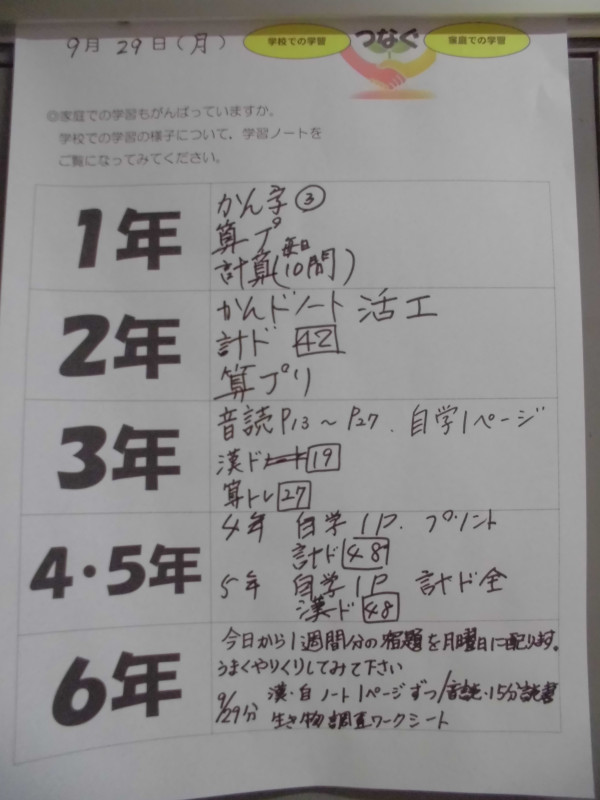 9月29日(月)
学校での学習 つなぐ 家庭での学習
◎家庭での学習もがんばっていますか。
学校での学習の様子について、学習ノートを
ご覧になってみてください。
1年
かん字③
算プ
計算(毎日10問)
2年
かんドノート 活工
計ド 42
算プリ
3年
音読P13～P27. 自学1ページ
漢ド 19
算トレ 27
4・5年
4年 自学1P. プリント
計ド 48
5年 自学1P 計ド全
漢ド 48
6年
今日から1週間分の宿題を月曜日に配ります。
うまくやりくりしてみて下さい
9/29分 漢・自ノート1ページずつ/音読・15分読書
生き物調査ワークシート